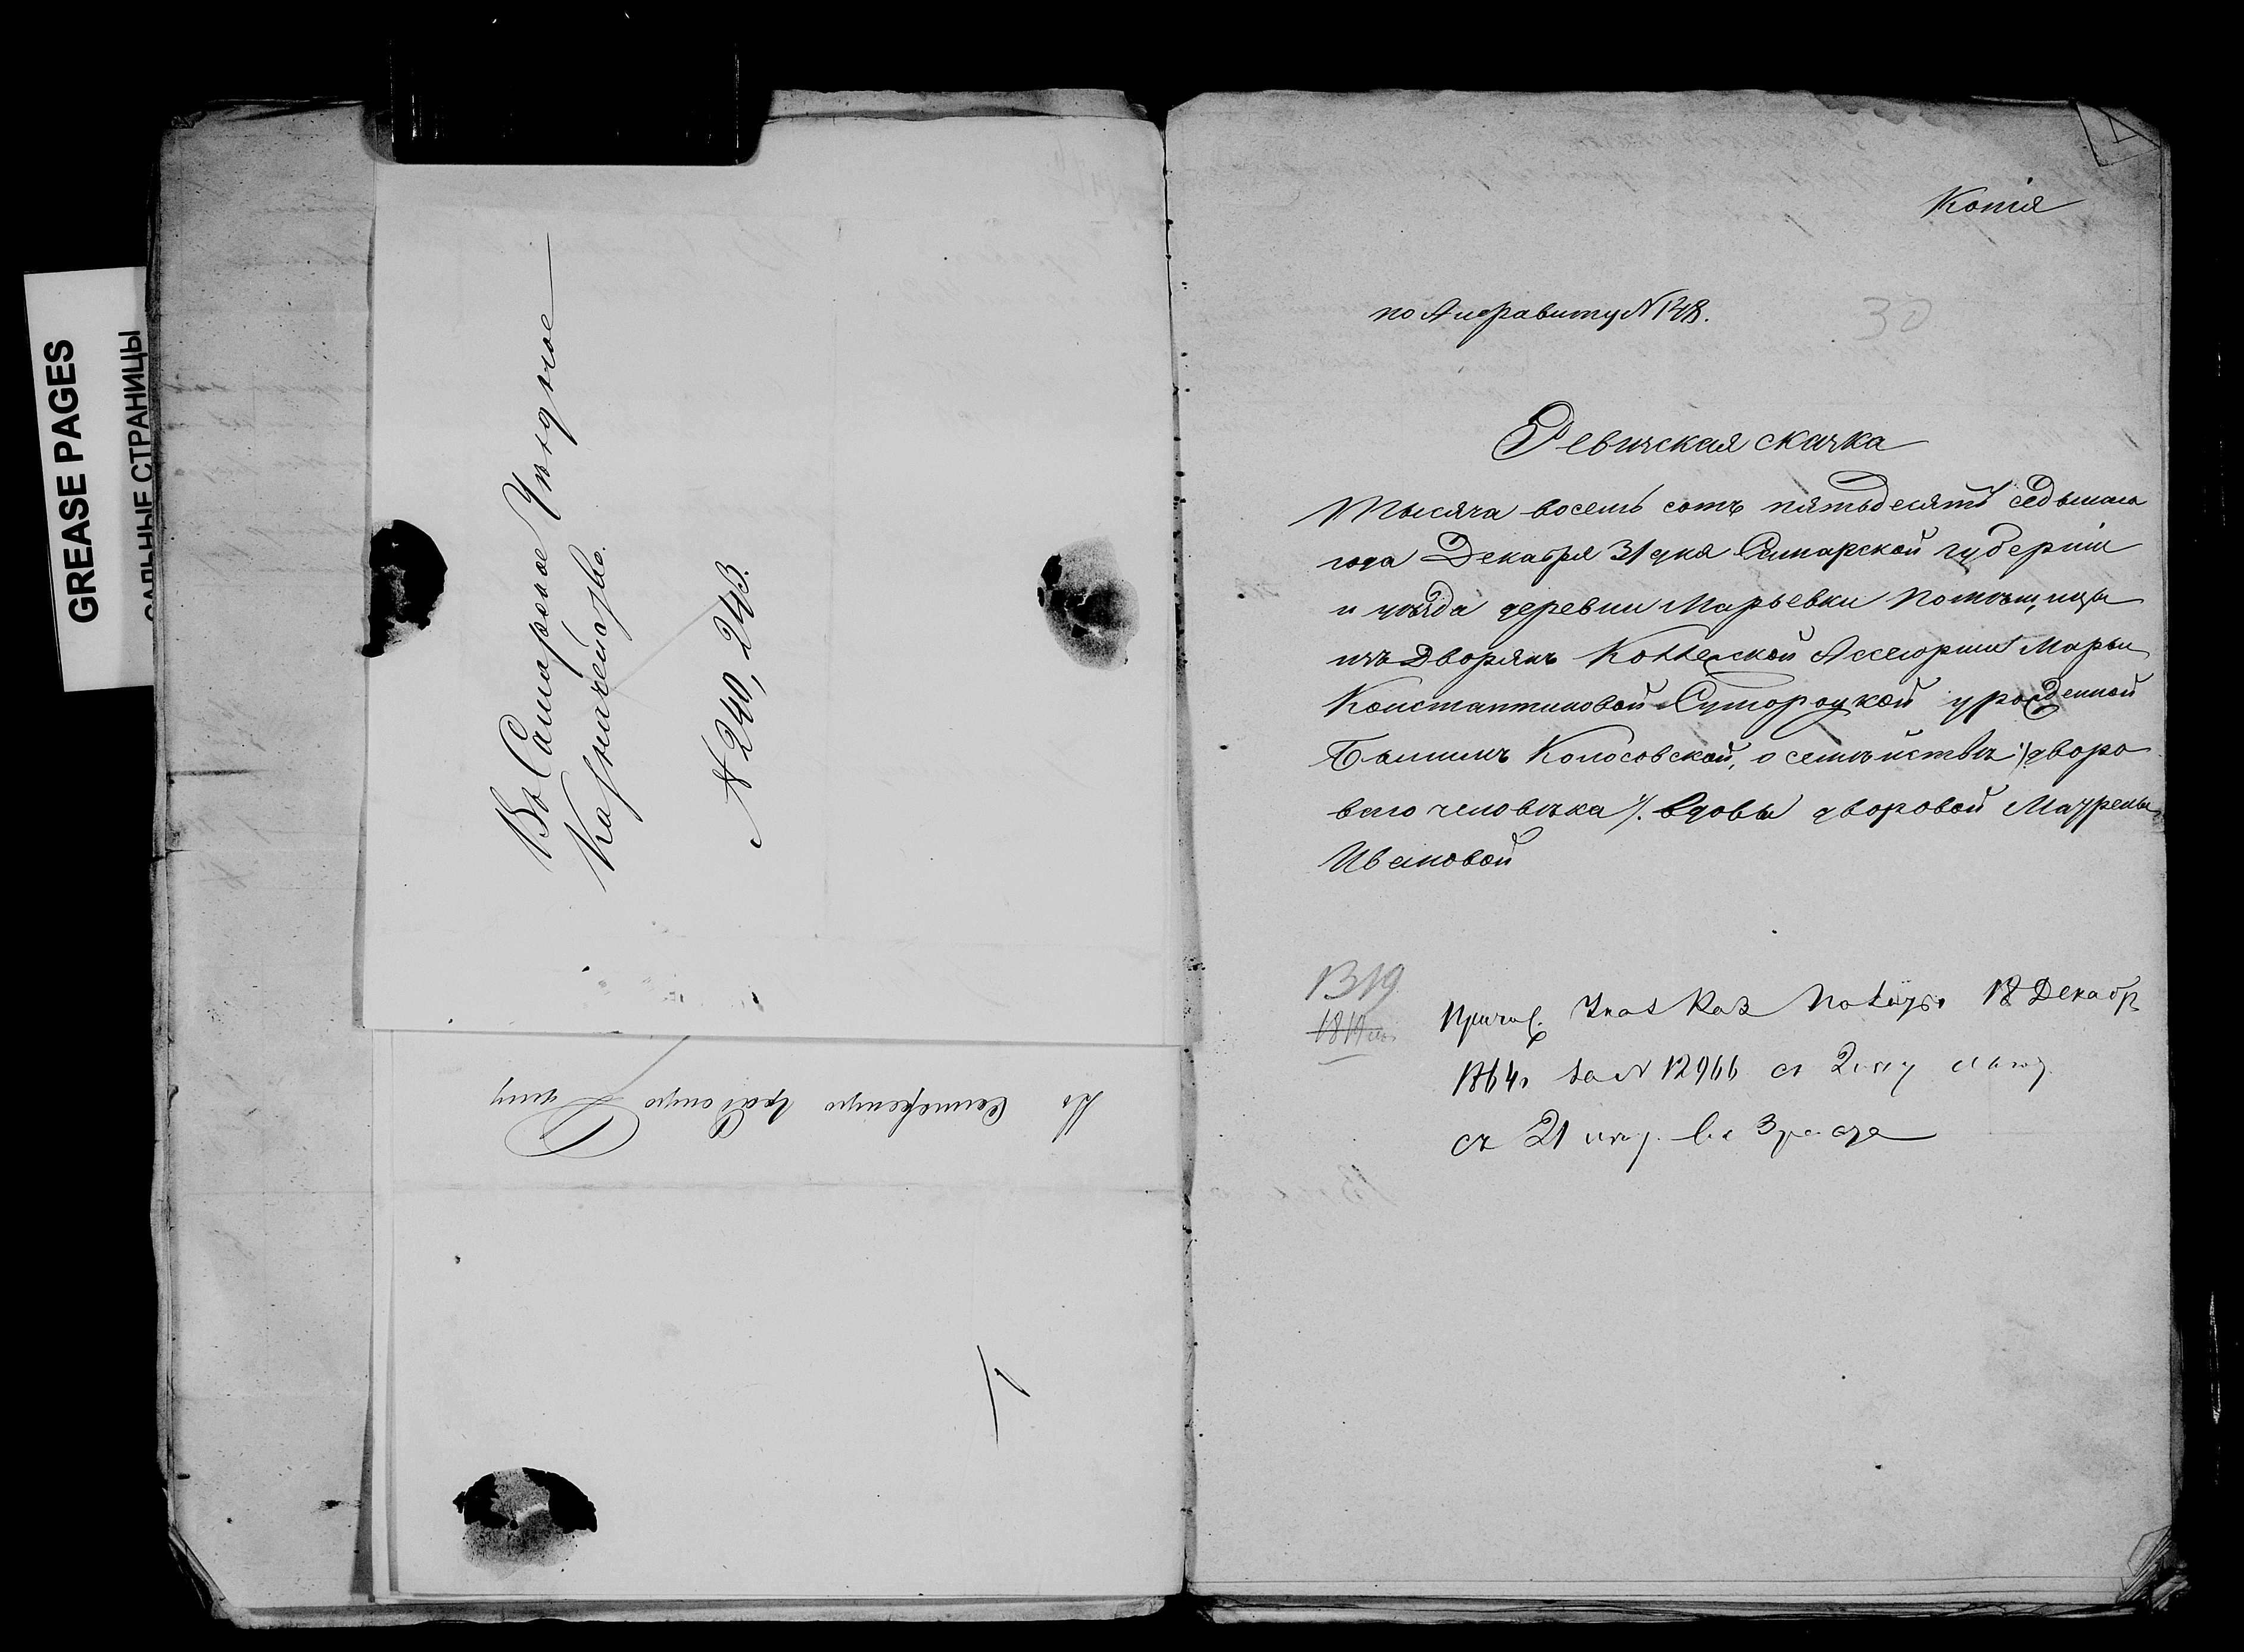 GREASE PAGES
САЛЬНЫЕ СТРАНИЦЫ
Въ Самарское Уѣздное
Казначейство.
№ 240, 243.
Въ Самарскую Градскую Думу
Копія
по Алфавиту № 148.
30
Ревизская сказка
Тысяча восемь сотъ пятьдесятъ седьмаго
года Декабря 31 дня Самарской губерніи
и уѣзда деревни Марьевки помѣщицы
изъ Дворянъ Коллежской Ассесорши Марьи
Константиновой Сутороцкой урожденной
Колосовской, о семѣйствѣ /: дворо
ваго человѣка :/ вдовы дворовой Мавры
Ивановой
1319
Причис. Указ Каз Палаты 18 Декабр
1864 за № 12966 съ 2 пол
съ 21 въ